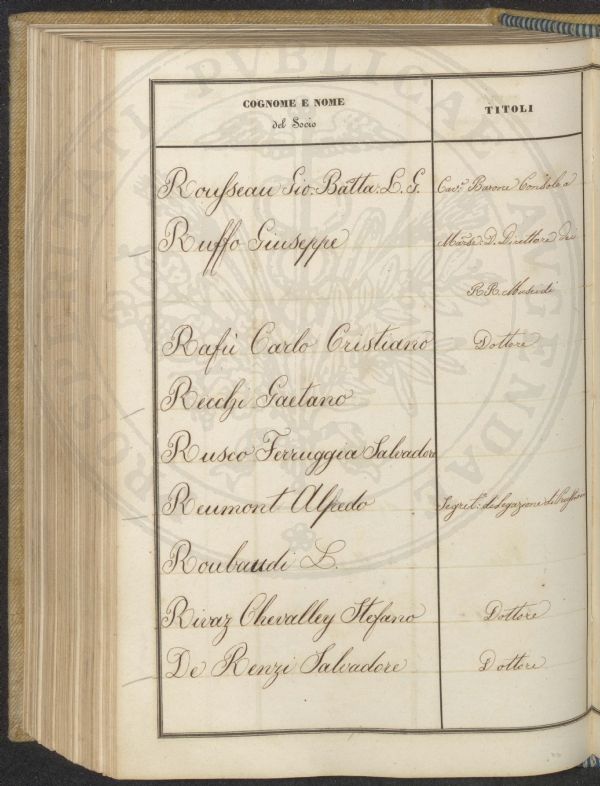 COGNOME E NOME
del Socio
TITOLI
Rousseau Gio: Batta: L. G. Cav.e Barone Console a
Ruffo Giuseppe Marse: D. Direttore dei
R.R. Musei di
Rafiì Carlo Cristiano Dottore
Recchi Gaetano
Rusco Ferruggia Salvadore
Reumont Alfredo Segret.o di Legazione di Prussia
Roubaudi L.
Rivaz Chevalley Stefano Dottore
De Renzi Salvadore Dottore
PROSPERITATI PVBLICAE AVGENDAE